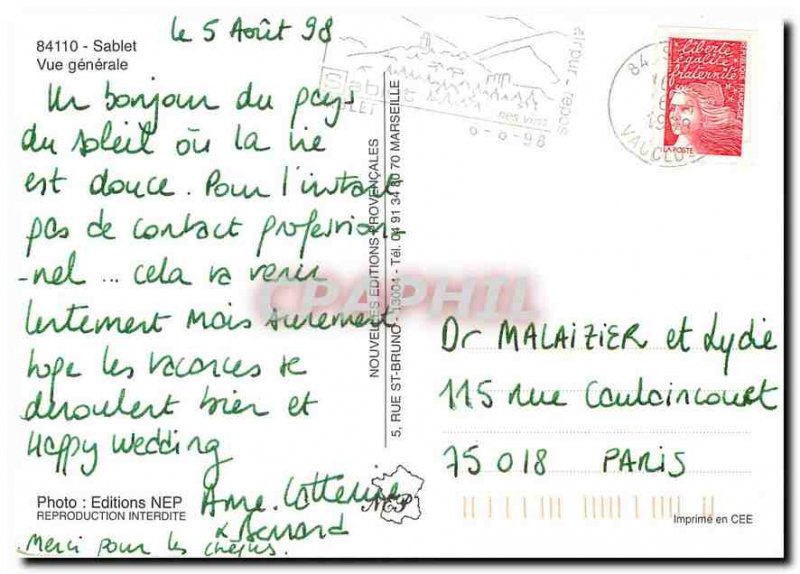 le 5 Août 98
84110 - Sablet
Vue générale
Un bonjour du pays
du soleil où la vie
est douce. Pour l'instant
pas de contact profession-
-nel ... cela va venir
lentement mais surement
hope les vacances se
deroulent bien et
Happy wedding
Anne. Catherine
& Bernard
Merci pour les chèques.
Photo : Editions NEP
REPRODUCTION INTERDITE
NOUVELLES EDITIONS PROVENÇALES
5, RUE ST-BRUNO - 13004 - Tél. 04 91 34 80 70 MARSEILLE
NEP
CPAPHIL
Sablet
air pur - repos
ses vins
6-8-98
84
1998
VAUCLUSE
liberté
égalité
fraternité
LA POSTE
Dr MALAIZIER et Lydie
115 rue Caulaincourt
75018 PARIS
Imprimé en CEE